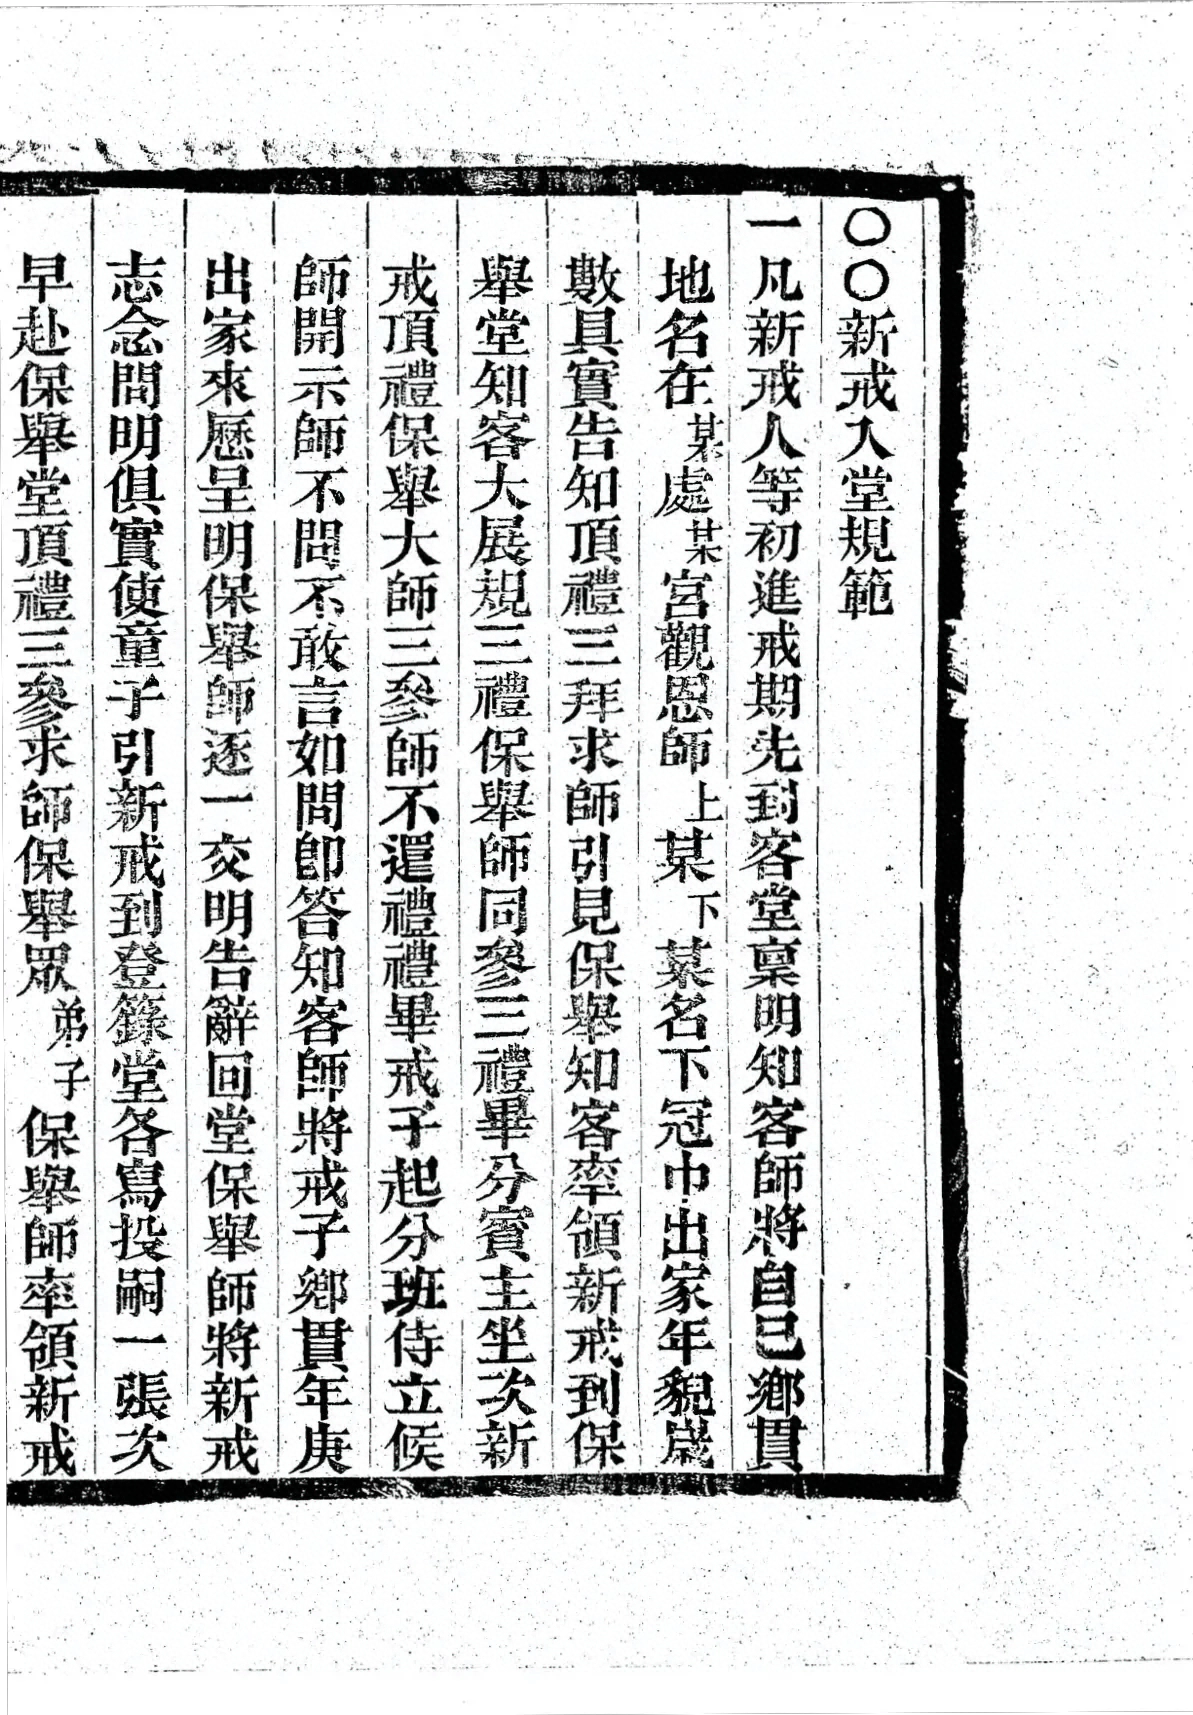 〇〇新戒入堂規範
一凡新戒人等初進戒期先到客堂稟明知客師將自己鄉貫
地名在某處某宮觀恩師上某下某名下冠巾出家年貌歲
數具實告知頂禮三拜求師引見保舉知客率領新戒到保
舉堂知客大展規三禮保舉師同參三禮畢分賓主坐次新
戒頂禮保舉大師三參師不還禮禮畢戒子起分班侍立候
師開示師不問不敢言如問即答知客師將戒子鄉貫年庚
出家來歷呈明保舉師逐一交明告辭回堂保舉師將新戒
志念問明俱實使童子引新戒到登籙堂各寫投嗣一張次
早赴保舉堂頂禮三參求師保舉眾弟子保舉師率領新戒